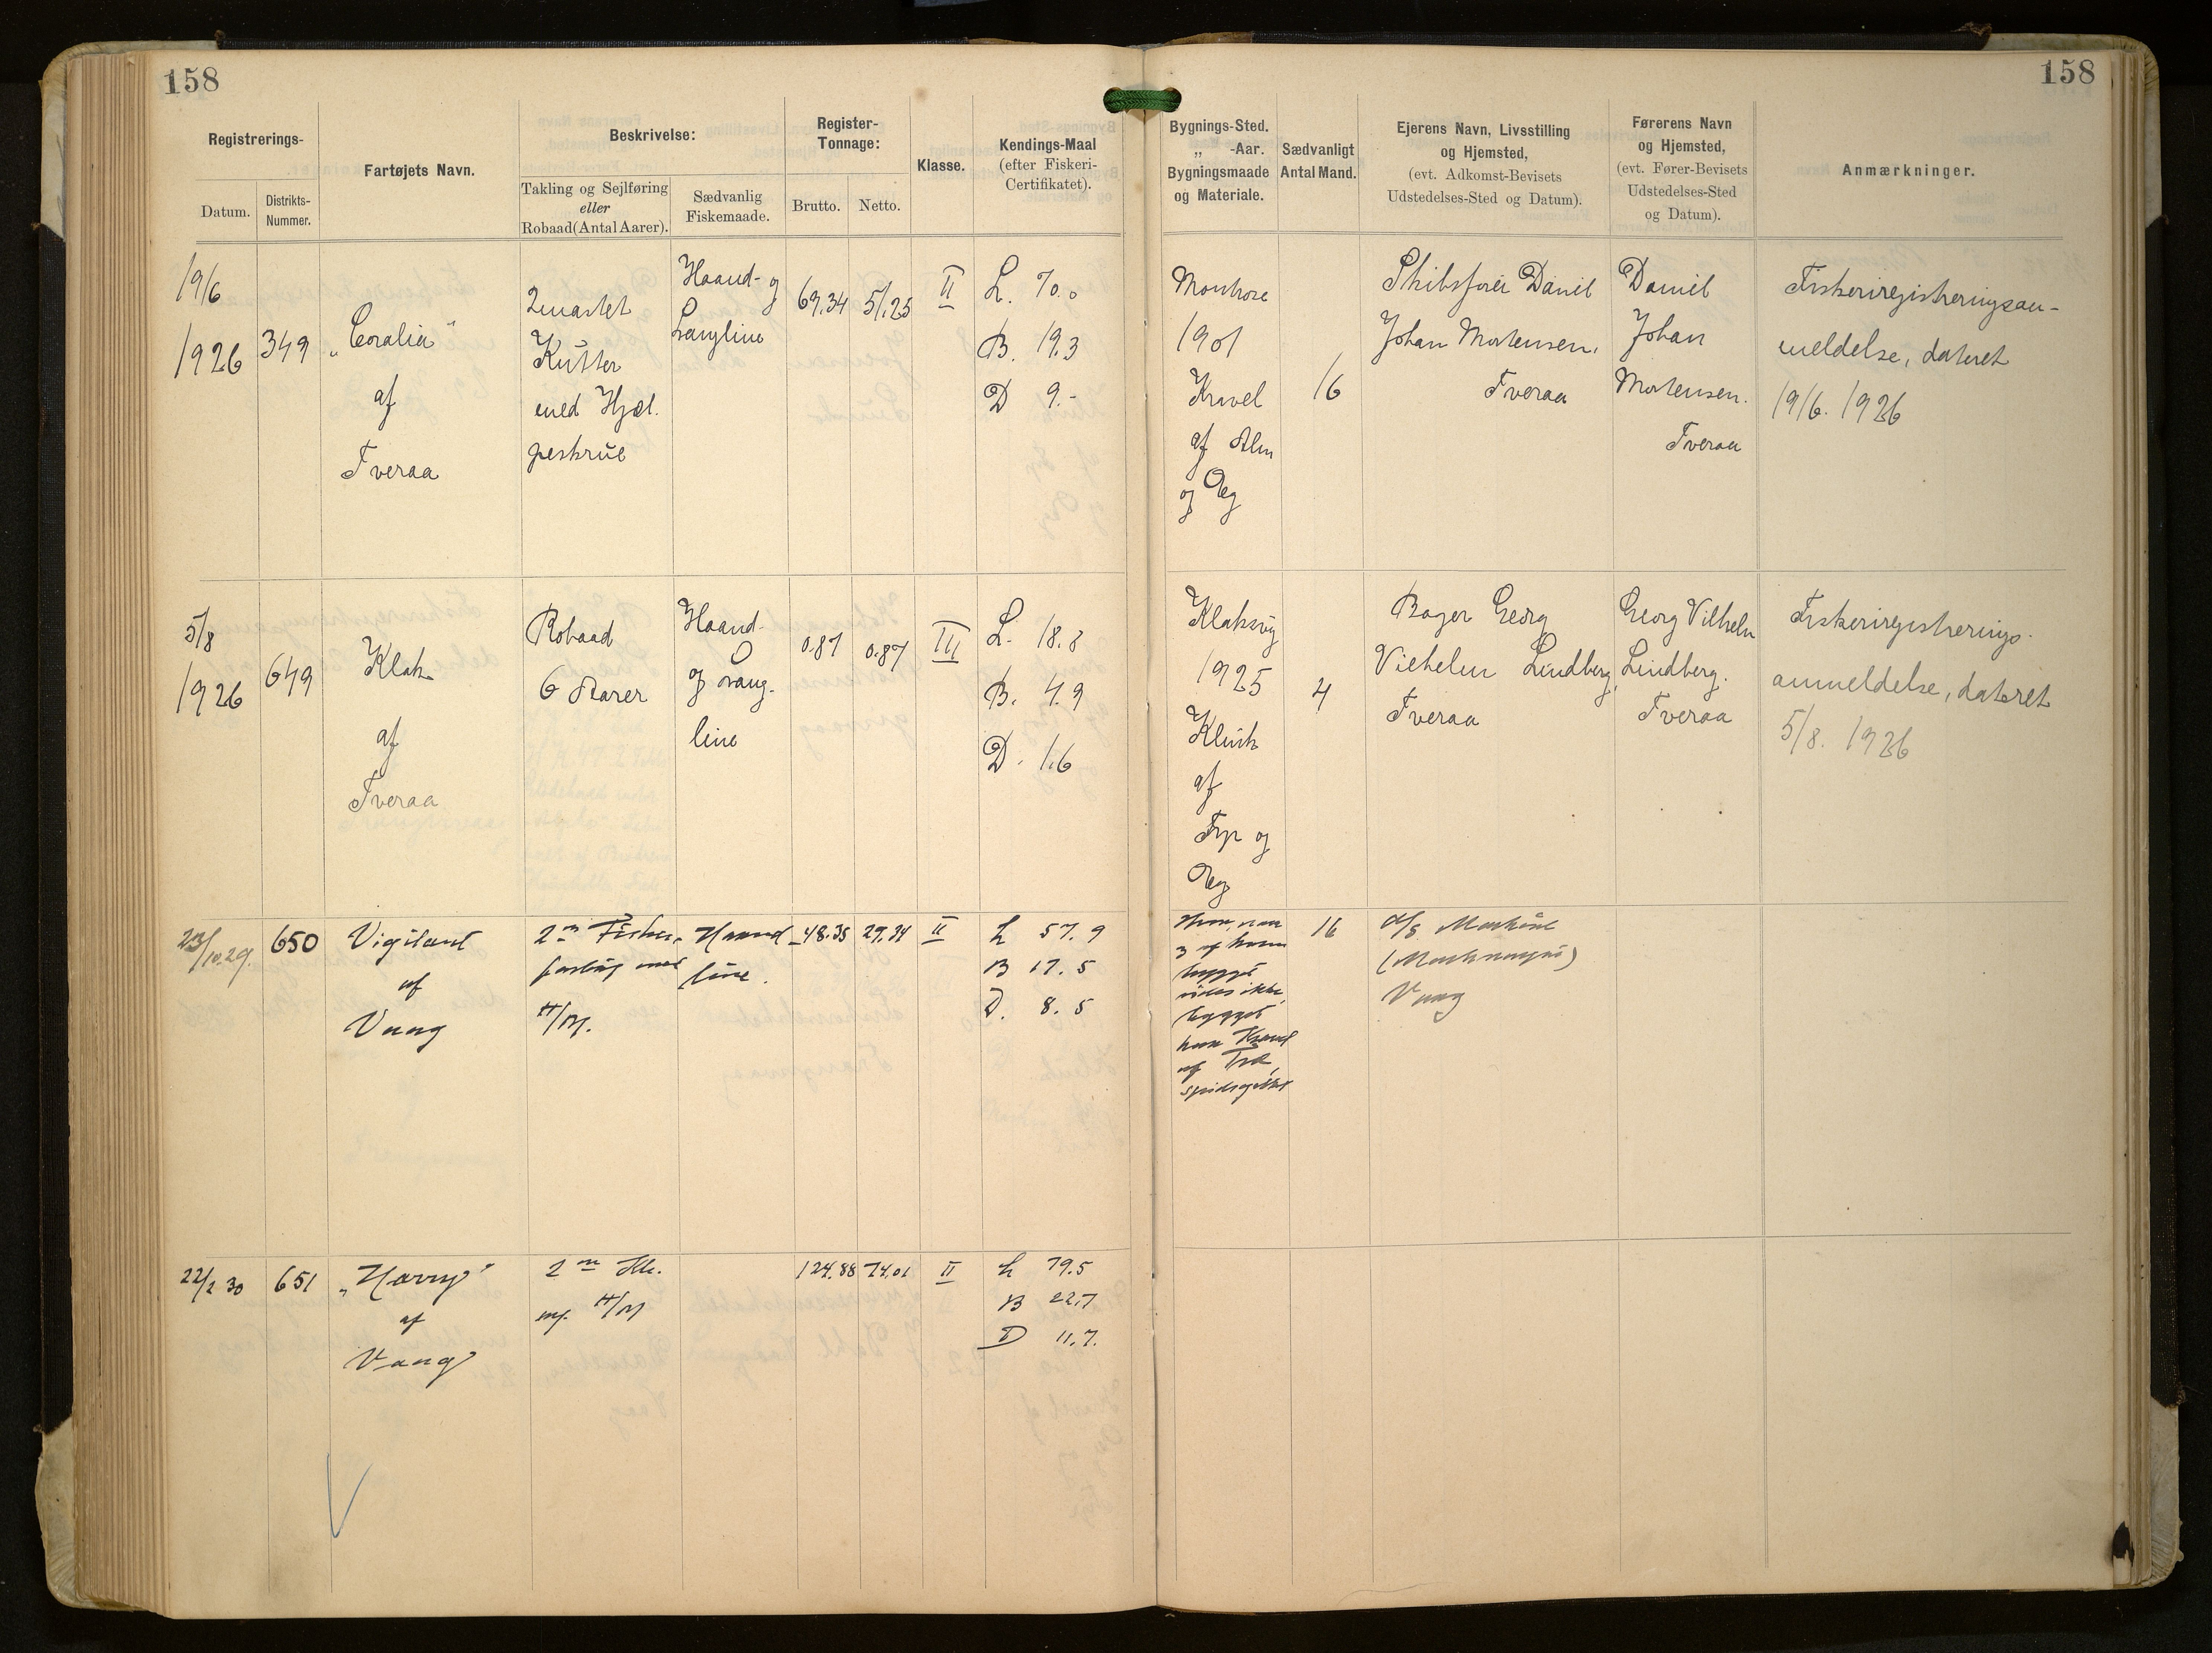 158
158
Registrerings-
Datum.
Distrikts-
Nummer.
Fartøjets Navn.
Beskrivelse:
Takling og Sejlføring
eller
Robaad (Antal Aarer).
Sædvanlig
Fiskemaade.
Register-
Tonnage:
Brutto.
Netto.
Klasse.
Kendings-Maal
(efter Fiskeri-
Certifikatet).
Bygnings-Sted.
„ -Aar.
Bygningsmaade
og Materiale.
Sædvanligt
Antal Mand.
Ejerens Navn, Livsstilling
og Hjemsted,
(evt. Adkomst-Bevisets
Udstedelses-Sted og Datum).
Førerens Navn
og Hjemsted,
(evt. Fører-Bevisets
Udstedelses-Sted
og Datum).
Anmærkninger.
19/6
1926
349
„Coralia"
af
Tveraa
2mastet
Kutter
med Hjæl-
peskrue
Haand- og
Langline
69.34
51.25
II
L. 70.0
B. 19.3
D 9.-
Montrose
1901
Kravel
af Alm
og Eg
16
Skibsfører Daniel
Johan Mortensen,
Tveraa
Daniel
Johan
Mortensen.
Tveraa
Fiskeriregistreringsan-
meldelse, dateret
19/6. 1926
5/8
1926
649
Klak
af
Tveraa
Robaad
6 Aarer
Haand-
og Lang-
line
0.87
0.87
III
L. 18.8
B. 4.9
D. 1.6
Klaksvig
1925
Klink
af
Fyr og
Eg
4
Bager Georg
Vilhelm Lindberg,
Tveraa
Georg Vilhelm
Lindberg.
Tveraa
Fiskeriregistrerings-
anmeldelse, dateret
5/8. 1926
23/10.29.
650
Vigilant
af
Vaag
2 m Fisker-
fartøj med
H/M.
Haand-
line.
48.35
29.34
II
L 57.9
B 17.5
D. 8.5
Hvor, naar
og af hvem
bygget
vides ikke,
bygget
paa Kravel
af Træ,
spidsgattet
16
A/S
Vaag
22/2 30
651
„Harry"
af
Vaag
2 m Sk.
m. H/M
124.88
74.01
II
L 79.5
B 22.7
D 11.7.